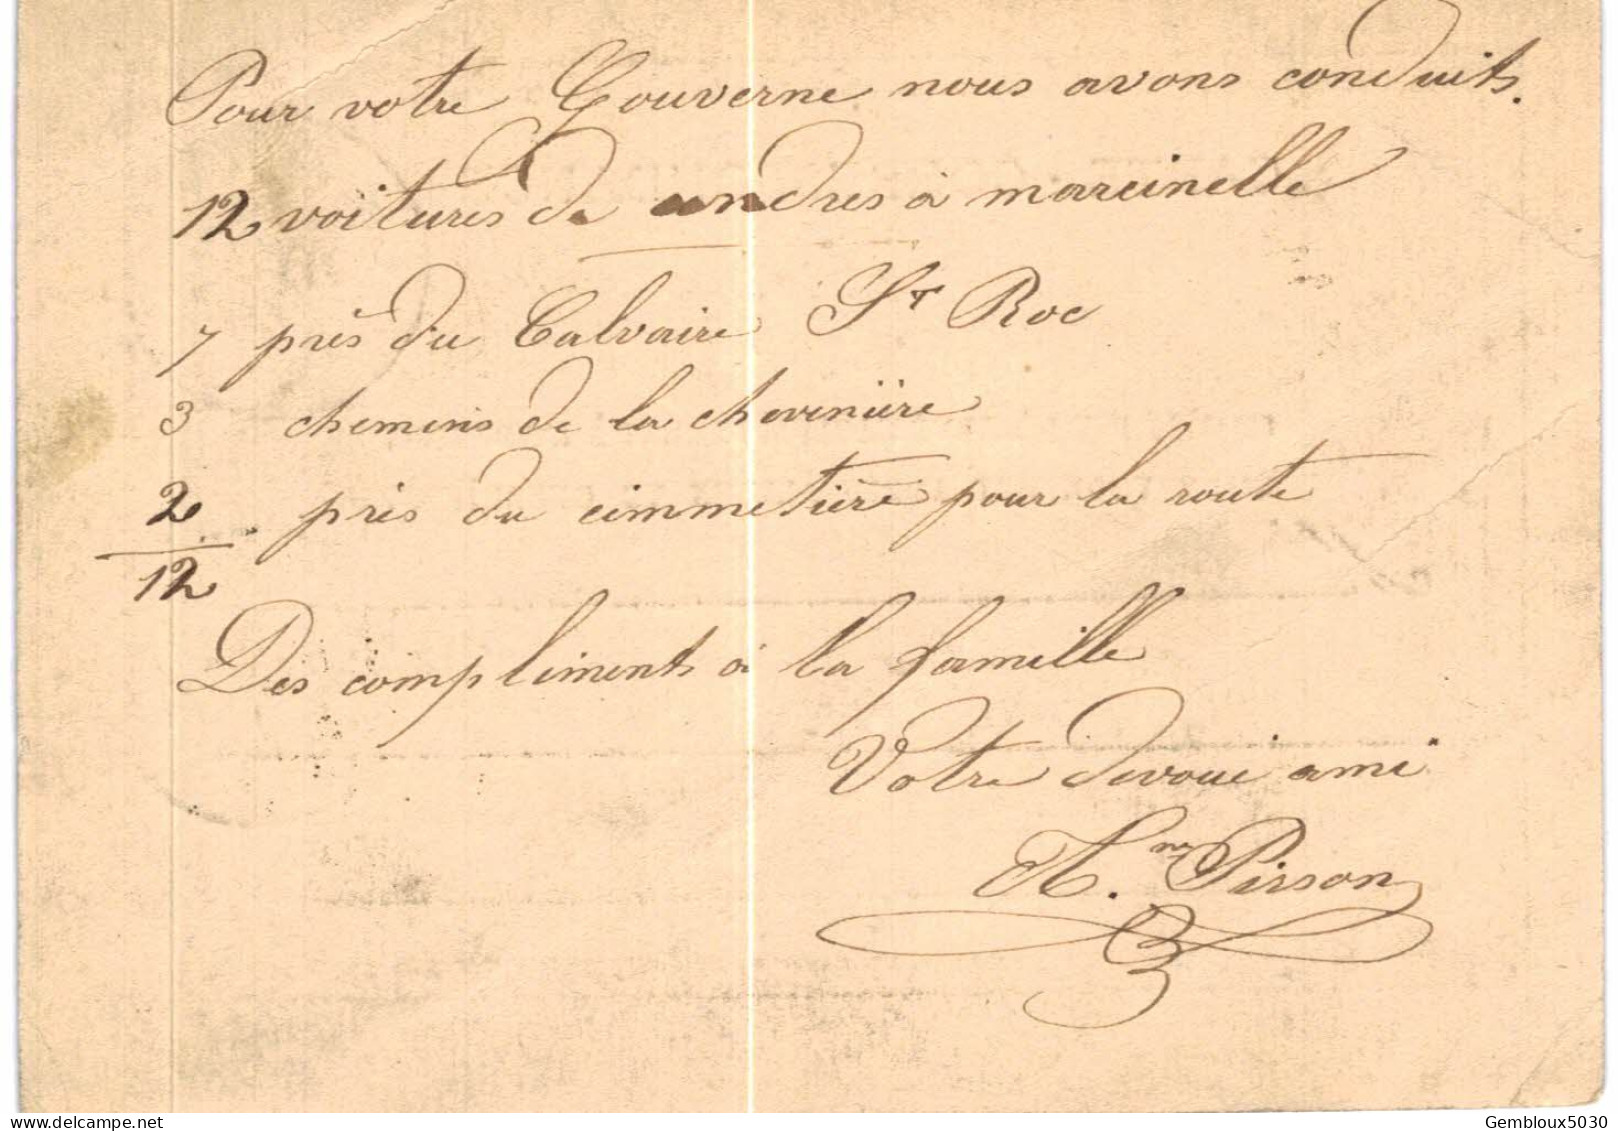 Pour votre Gouverne nous avons conduits.
12 voitures de cendres à marcinelle
7 près du Calvaire St Roc
3 chemins de la chevenière
2 près du cimmetière pour la route
12
Des compliments à la famille
Votre devoué ami
Pirson
Gembloux5030